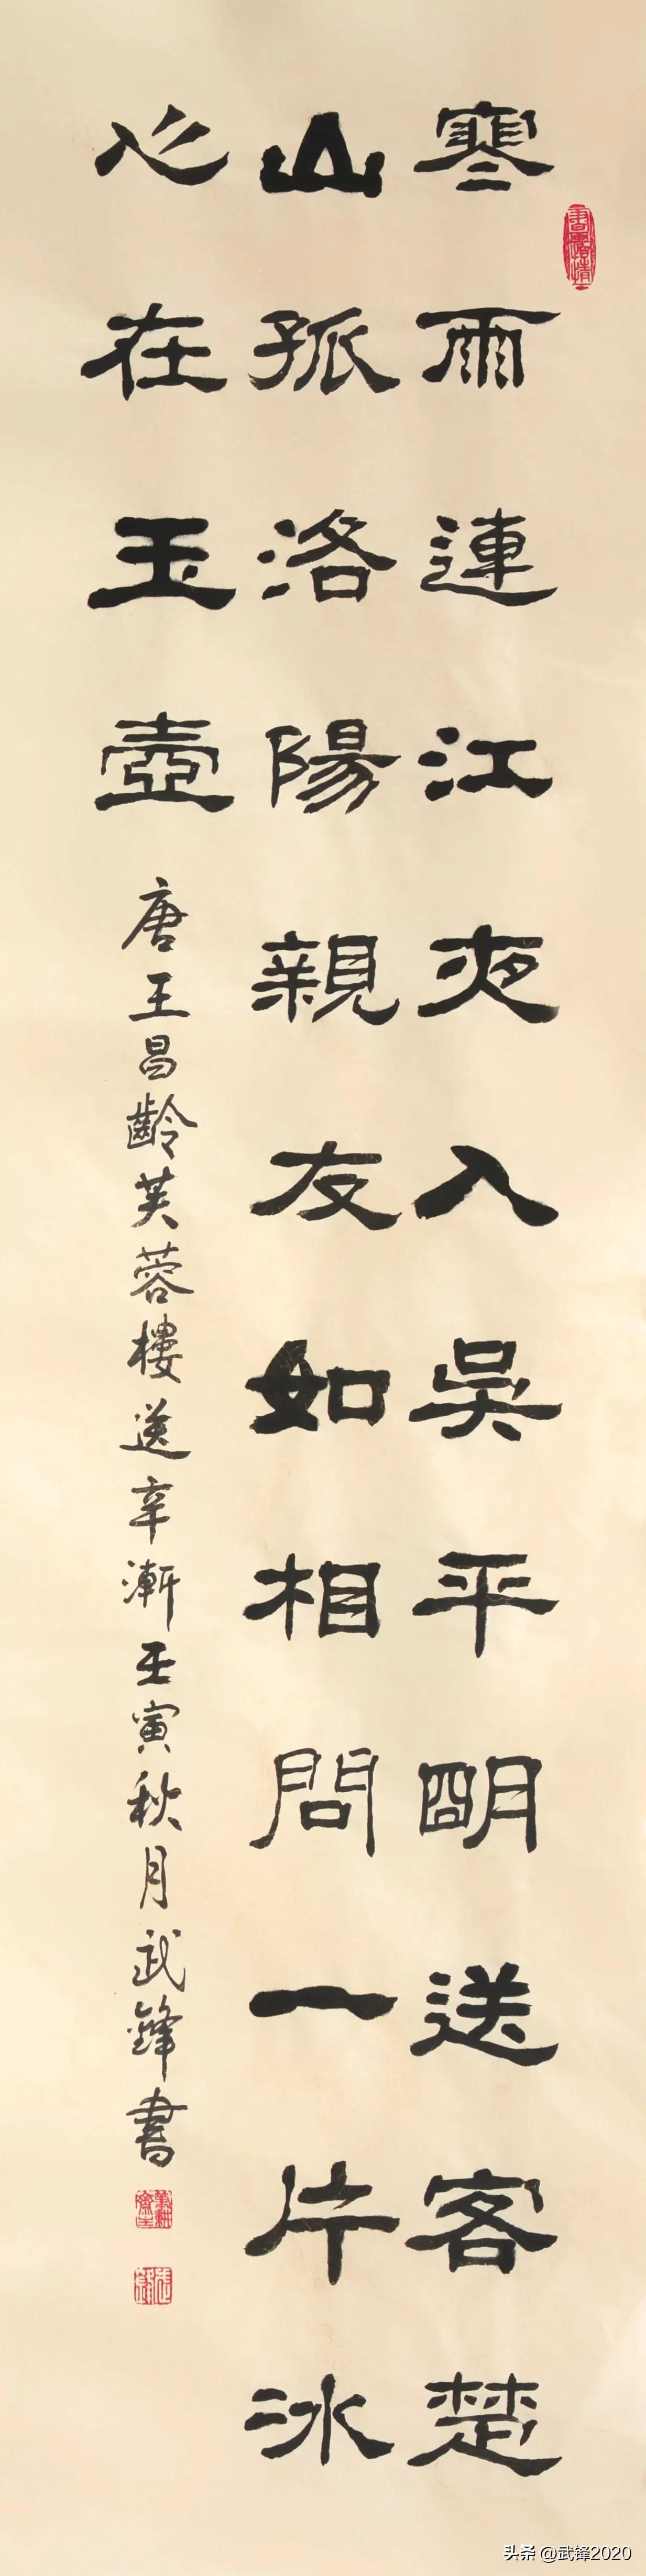 寒雨連江夜入吳平明送客楚
山孤洛陽親友如相問一片冰
心在玉壺
唐王昌齡芙蓉樓送辛漸壬寅秋月武鋒書
头条 @武锋2020